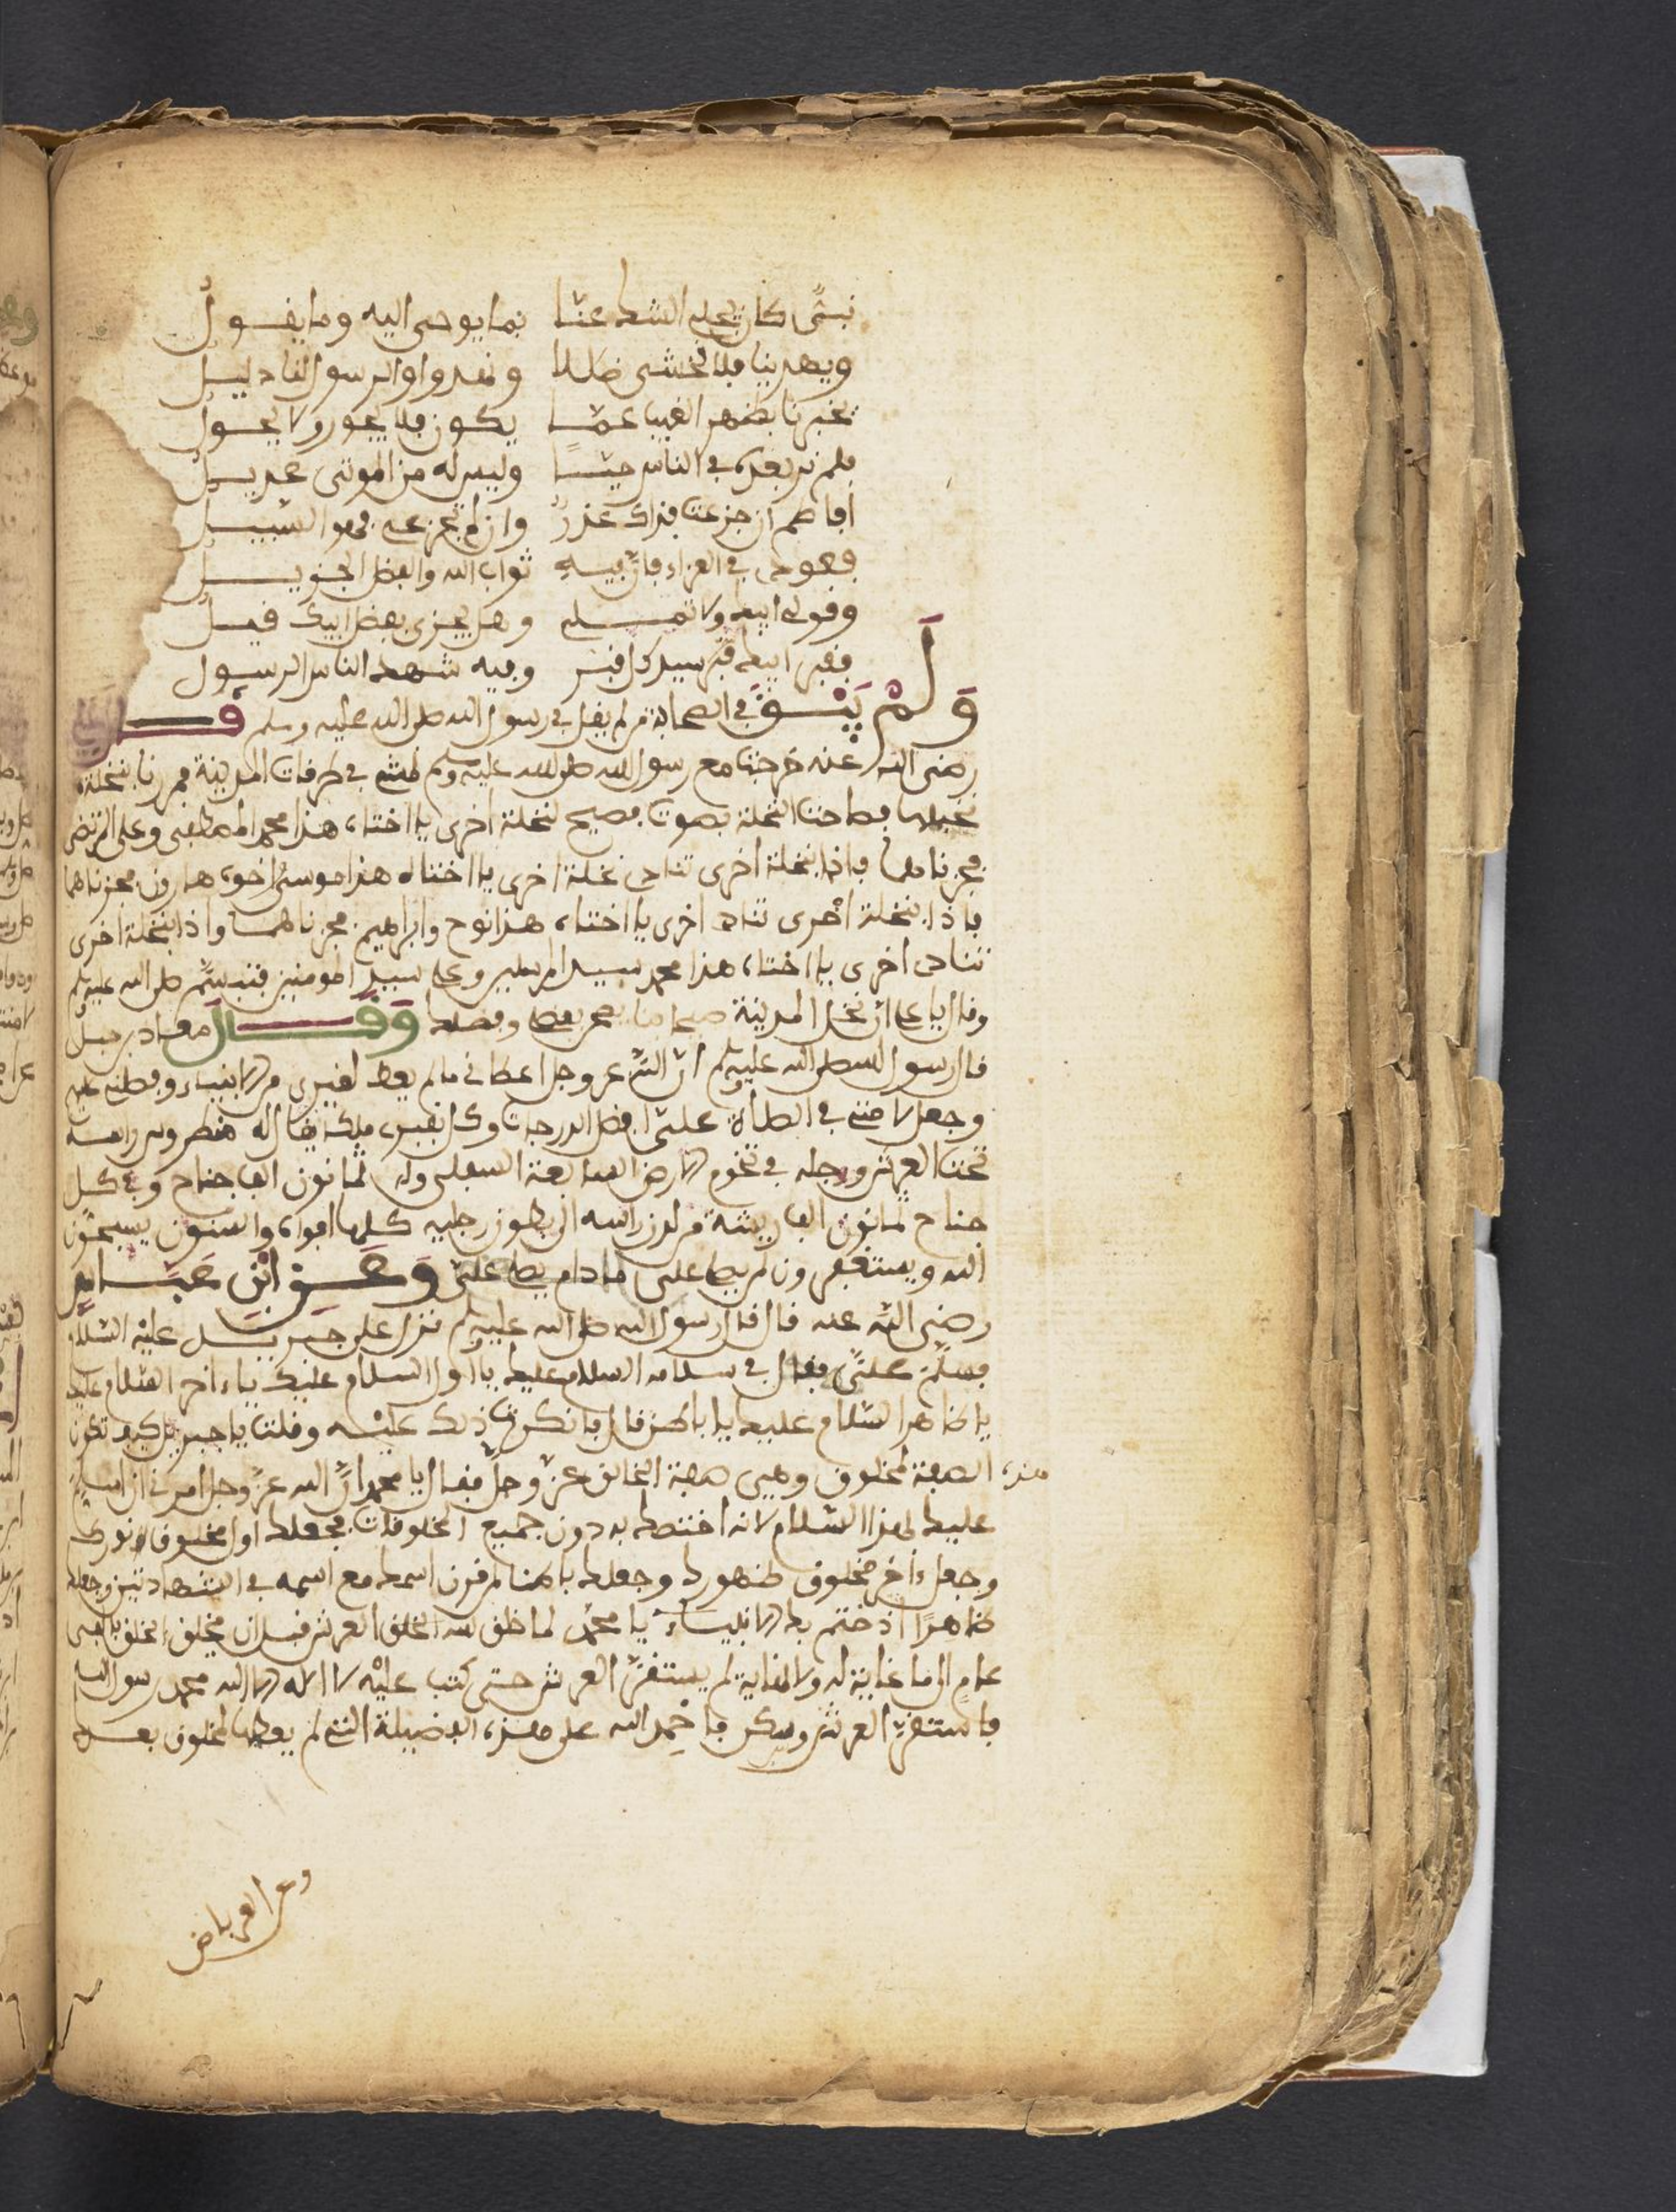 نبيّ كان يجلي الشك عنا بما يوحى اليه وما يقول
ويهدينا فلا نخشى ضللا ونغدوا والرسول لنا دليل
يخبرنا بظهر الغيب عمّا يكون فلا يجور ولا يحول
فلم نر بعده في الناس حيّا وليس له من الموتى عديل
افاطم ان جزعت فذاك عذر وان لم تجزعي فهو السبيل
فعودي في العزاء فان فيه ثواب الله والفضل الجزيل
وقولي ابيك ولا تملي وهل يجزي بفضل ابيك قيل
فقبر ابيك قبر سيد كل قبر وفيه شهد الناس الرسول
وَلَمْ يَبْقَ في الصحابة من لم يقل في رسول الله صلى الله عليه وسلم قال علي
رضى الله عنه خرجنا مع رسول الله صلى الله عليه وسلم نمشي في طرقات المدينة فمررنا بنخلة
نخيلها فصاحت النخلة بصوت فصيح لنخلة اخرى يا اختاه هذا محمد المصطفى وعلي المرتضى
فجزناهما فاذا بنخلة اخرى تنادي نخلة اخرى يا اختاه هذا موسى واخوه هارون فجزناهما
فاذا بنخلة اخرى تنادي اخرى يا اختاه هذا نوح وابراهيم فجزناهما واذا بنخلة اخرى
تنادي اخرى يا اختاه هذا محمد سيد المرسلين وعلي سيد المومنين فتبسّم صلى الله عليه وسلم
وقال يا علي ان نخل المدينة صيحانا يصحن بفضلي وفضلك وَقَالَ معاذ بن جبل
قال رسول الله صلى الله عليه وسلم ان الله عز وجل اعطاني ما لم يعط لغيري من الانبياء وفضلني عليهم
وجعل لامتي في الصلاة عليّ افضل الدرجات وكل بقبري ملك يقال له منطروس راسه
تحت العرش ورجله في تخوم الارض السابعة السفلى وله ثمانون الف جناح وفي كل
جناح ثمانون الف ريشة من لدن راسه الى بطون رجليه كلها افواه والسنون يسبحون
الله ويستغفرون لمن يصلي علي ما دام يصلي علي وَعَنِ ابْنِ عَبَّاسٍ
رضي الله عنه قال قال رسول الله صلى الله عليه وسلم نزل علي جبريل عليه السلام
فسلّم عليّ فقال في سلامه السلام عليك يا اول السلام عليك يا ءاخر السلام عليك
يا ظاهر السلام عليك يا باطن قال فانكرت ذلك عليه وقلت يا جبريل كيف تكون
هذه الصفة لمخلوق وهي صفة الخالق عزّ وجلّ فقال يا محمد انّ الله عزّ وجل امرني ان اسلم
عليك بهذا السلام لانه اختصك به دون جميع المخلوقات فجعلك اول مخلوق نورك
وجعل ءاخر مخلوق ظهورك وجعلك باطنا لم قرن اسمك مع اسمه في الشهادتين وجعلك
ظاهرًا اذ ختم بك الانبياء يا محمد لما خلق الله الخلق العرش قبل ان يخلق الخلق بالفي
عام الى ما غاية له ولا نهاية لم يستقرّ العرش حتى كتب عليه لا اله الا الله محمد رسول الله
فاستقرّ العرش وسكن فاحمد الله على هذه الفضيلة التي لم يعطها لمخلوق بعدك
وعن العرباض